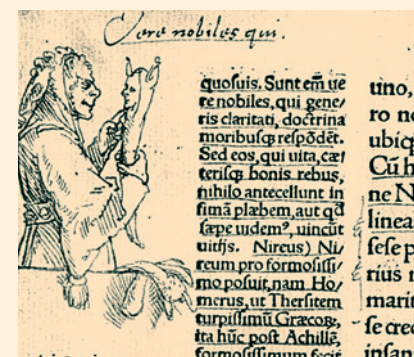 Vere nobiles qui.
quosuis. Sunt em̄ ue
re nobiles, qui gene/
ris claritati, doctrina
moribusq; respōdēt.
Sed eos, qui uita, cæt
terisq; bonis rebus,
nihilo antecellunt in
fimā plæbem, aut qđ
sæpe uidemꝰ, uincūt
uitijs. Nireus) Ni/
reum pro formosissi/
mo posuit, nam Ho/
merus, ut Thersitem
turpissimū Græcoꝝ,
ita hūc post Achillē,
formosissimum fecit
uno,
ro no
ubiq
Cū h
ne N
linea
sese p
rius n
marit
se cred
insan